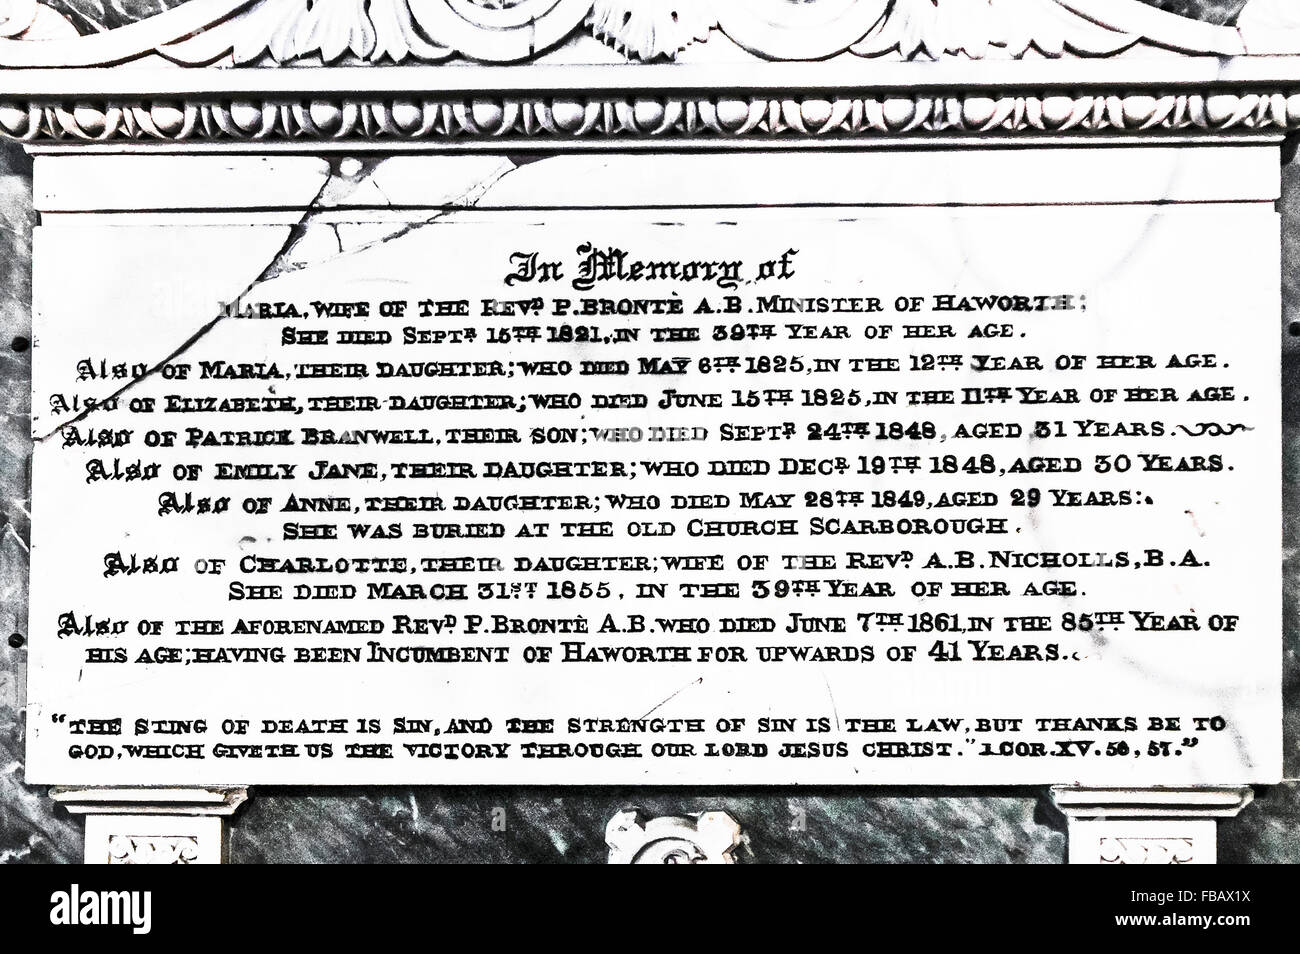 In Memory of
MARIA, WIFE OF THE REVD. P. BRONTË A.B. MINISTER OF HAWORTH;
SHE DIED SEPTR. 15TH 1821, IN THE 39TH YEAR OF HER AGE.
Also OF MARIA, THEIR DAUGHTER; WHO DIED MAY 6TH 1825, IN THE 12TH YEAR OF HER AGE.
Also OF ELIZABETH, THEIR DAUGHTER; WHO DIED JUNE 15TH 1825, IN THE 11TH YEAR OF HER AGE.
Also OF PATRICK BRANWELL, THEIR SON; WHO DIED SEPTR. 24TH 1848, AGED 31 YEARS.
Also OF EMILY JANE, THEIR DAUGHTER; WHO DIED DECR. 19TH 1848, AGED 30 YEARS.
Also OF ANNE, THEIR DAUGHTER; WHO DIED MAY 28TH 1849, AGED 29 YEARS:.
SHE WAS BURIED AT THE OLD CHURCH SCARBOROUGH.
Also OF CHARLOTTE, THEIR DAUGHTER; WIFE OF THE REVD. A.B. NICHOLLS, B.A.
SHE DIED MARCH 31ST 1855, IN THE 39TH YEAR OF HER AGE.
Also OF THE AFORENAMED REVD. P. BRONTË A.B. WHO DIED JUNE 7TH 1861, IN THE 85TH YEAR OF
HIS AGE; HAVING BEEN INCUMBENT OF HAWORTH FOR UPWARDS OF 41 YEARS.
"THE STING OF DEATH IS SIN, AND THE STRENGTH OF SIN IS THE LAW, BUT THANKS BE TO
GOD, WHICH GIVETH US THE VICTORY THROUGH OUR LORD JESUS CHRIST." 1 COR. XV. 56, 57."
alamy stock photo
FBAX1X
www.alamy.com